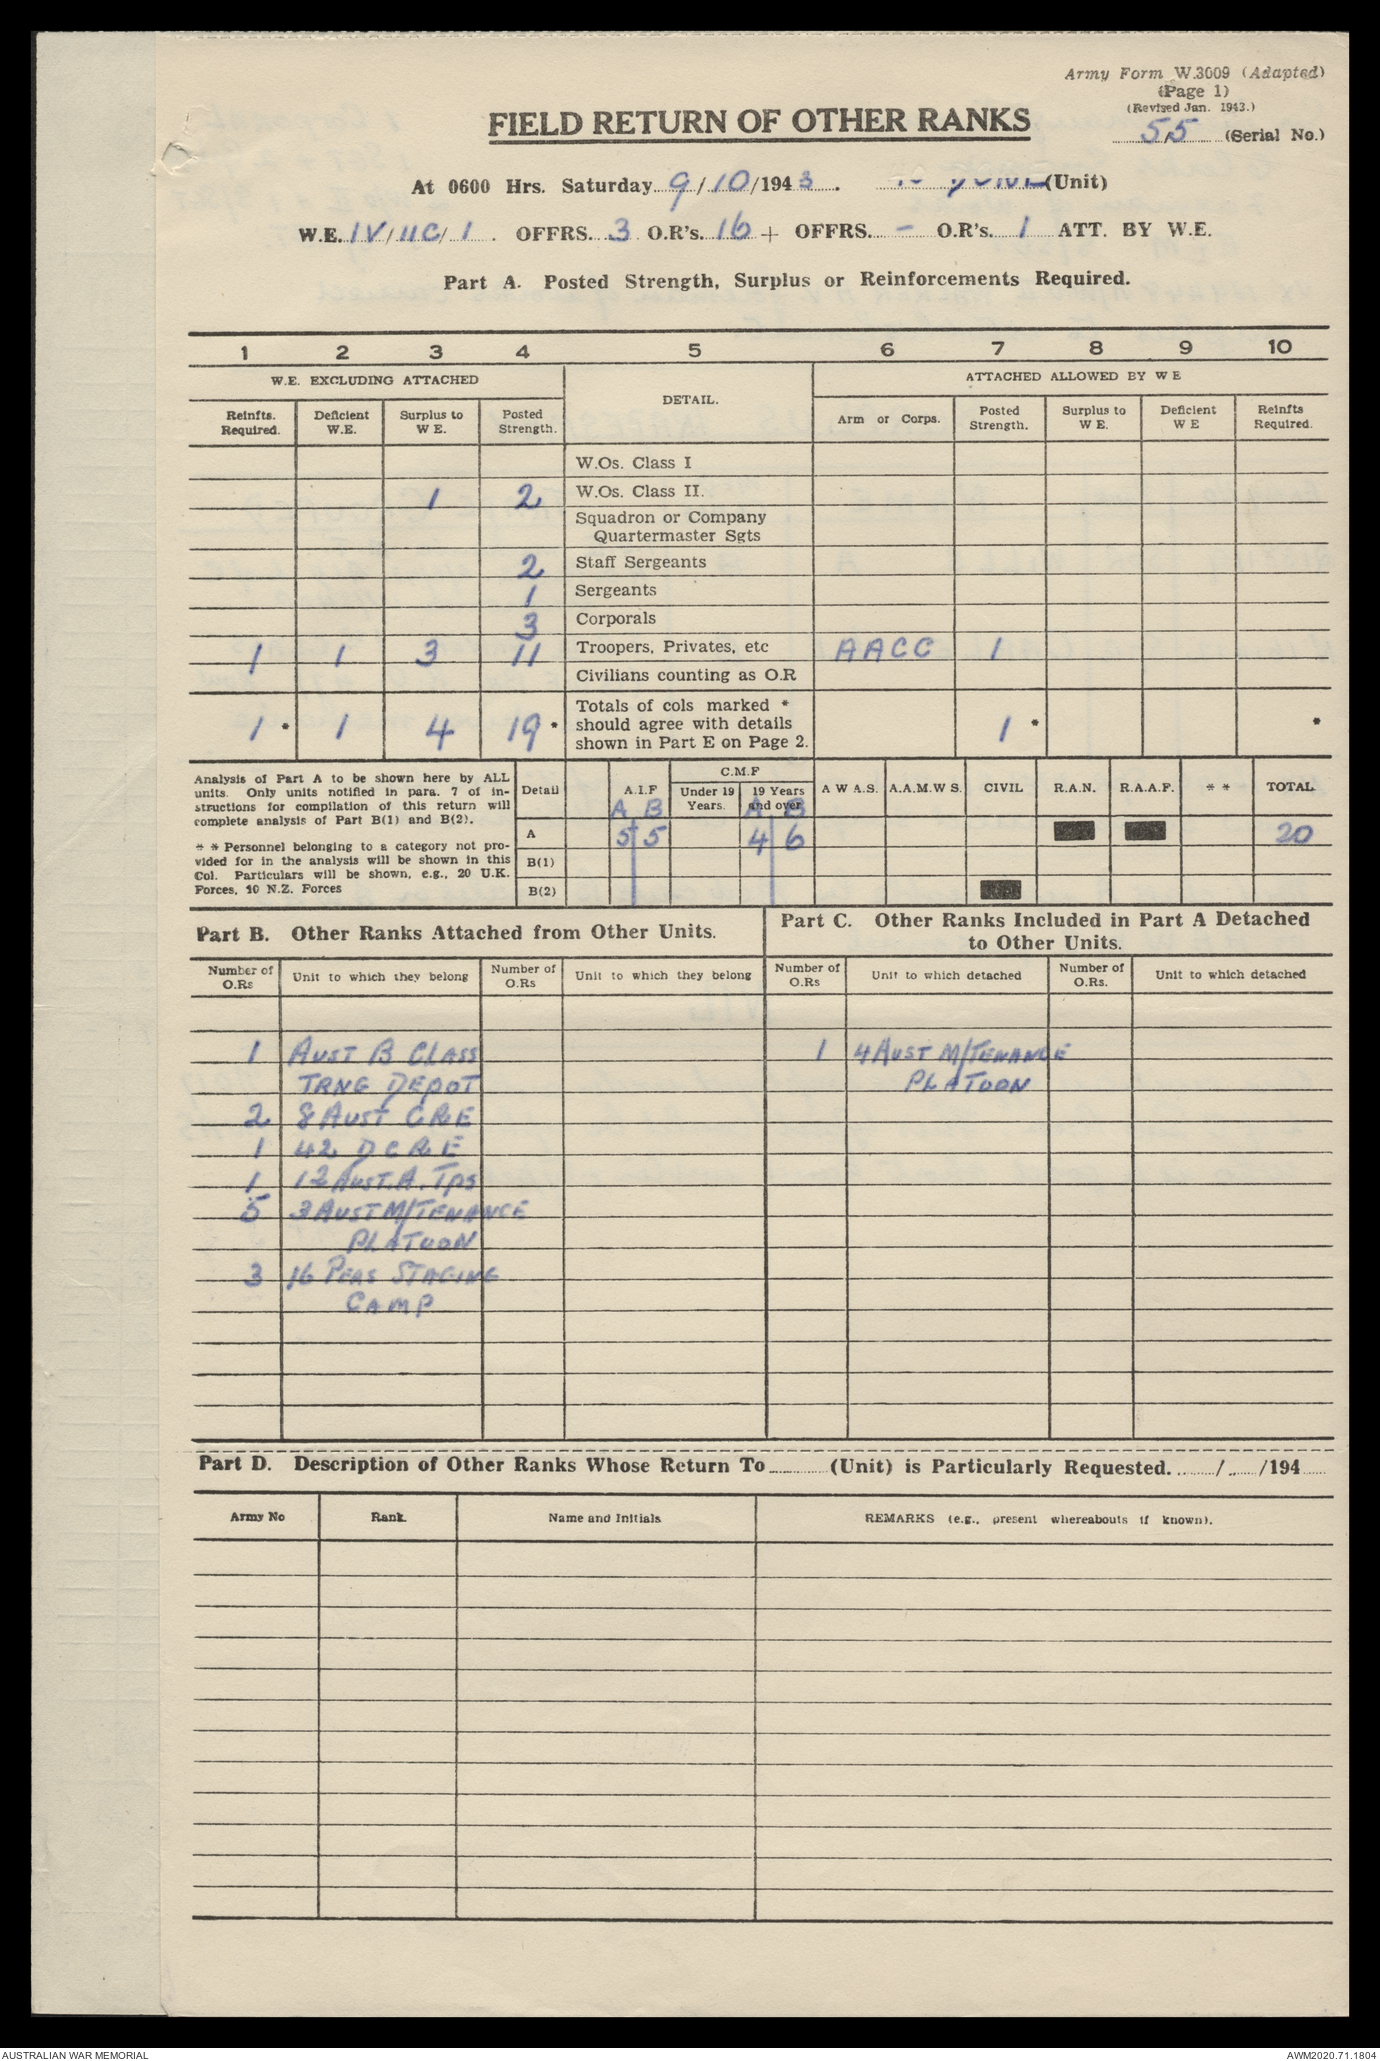 Army Form W.3009 (Adapted)
(Page 1)
(Revised Jan. 1943.)
55 (Serial No.)
FIELD RETURN OF OTHER RANKS
At 0600 Hrs. Saturday 9/10/1943. (Unit)
W.E. IV/11C/1. OFFRS. 3 O.R's. 16 + OFFRS. - O.R's. 1 ATT. BY W.E.
Part A. Posted Strength, Surplus or Reinforcements Required.
1 2 3 4 5 6 7 8 9 10
W.E. EXCLUDING ATTACHED DETAIL. ATTACHED ALLOWED BY W E
Reinfts. Required. Deficient W.E. Surplus to W E. Posted Strength. Arm or Corps. Posted Strength. Surplus to W E. Deficient W E Reinfts Required.
W.Os. Class I
1 2 W.Os. Class II.
Squadron or Company
Quartermaster Sgts
2 Staff Sergeants
1 Sergeants
3 Corporals
1 1 3 11 Troopers, Privates, etc AACC 1
Civilians counting as O.R
Totals of cols marked *
1 * 1 4 19 * should agree with details 1 * *
shown in Part E on Page 2.
Analysis of Part A to be shown here by ALL
units. Only units notified in para. 7 of in-
structions for compilation of this return will
complete analysis of Part B(1) and B(2).
* * Personnel belonging to a category not pro-
vided for in the analysis will be shown in this
Col. Particulars will be shown, e.g., 20 U.K.
Forces, 10 N.Z. Forces
C.M.F
Detail A.I.F Under 19 Years. 19 Years and over A W A.S. A.A.M.W S. CIVIL R.A.N. R.A.A.F. * * TOTAL
A B A B
A 5 5 4 6 20
B(1)
B(2)
Part B. Other Ranks Attached from Other Units.
Part C. Other Ranks Included in Part A Detached
to Other Units.
Number of O.Rs Unit to which they belong Number of O.Rs Unit to which they belong Number of O.Rs Unit to which detached Number of O.Rs. Unit to which detached
1 AUST B CLASS 1 4 AUST M/TENANCE
TRNG DEPOT PLATOON
2 8 AUST CRE
1 42 DCRE
1 12 AUST. A. Tps
5 3 AUST M/TENANCE
PLATOON
3 16 PERS STAGING
CAMP
Part D. Description of Other Ranks Whose Return To (Unit) is Particularly Requested. / /194
Army No Rank Name and Initials REMARKS (e.g., present whereabouts if known).
AUSTRALIAN WAR MEMORIAL AWM2020.71.1804